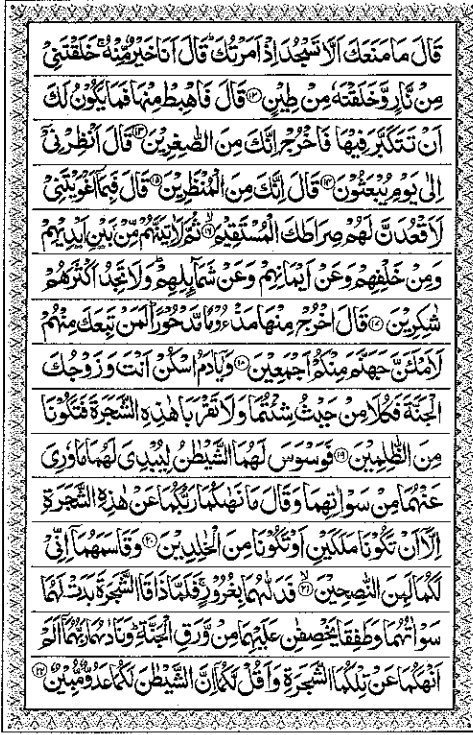 قَالَ مَا مَنَعَكَ اَلَّا تَسْجُدَ اِذْ اَمَرْتُكَ ؕ قَالَ اَنَا خَيْرٌ مِّنْهُ ۚ خَلَقْتَنِىْ
مِنْ نَّارٍ وَّخَلَقْتَهٗ مِنْ طِيْنٍ ﴿۱۲﴾ قَالَ فَاهْبِطْ مِنْهَا فَمَا يَكُوْنُ لَكَ
اَنْ تَتَكَبَّرَ فِيْهَا فَاخْرُجْ اِنَّكَ مِنَ الصّٰغِرِيْنَ ﴿۱۳﴾ قَالَ اَنْظِرْنِىْۤ
اِلٰى يَوْمِ يُبْعَثُوْنَ ﴿۱۴﴾ قَالَ اِنَّكَ مِنَ الْمُنْظَرِيْنَ ﴿۱۵﴾ قَالَ فَبِمَاۤ اَغْوَيْتَنِىْ
لَاَقْعُدَنَّ لَهُمْ صِرَاطَكَ الْمُسْتَقِيْمَ ۙ﴿۱۶﴾ ثُمَّ لَاٰتِيَنَّهُمْ مِّنْۢ بَيْنِ اَيْدِيْهِمْ
وَمِنْ خَلْفِهِمْ وَعَنْ اَيْمَانِهِمْ وَعَنْ شَمَآئِلِهِمْ ؕ وَلَا تَجِدُ اَكْثَرَهُمْ
شٰكِرِيْنَ ﴿۱۷﴾ قَالَ اخْرُجْ مِنْهَا مَذْءُوْمًا مَّدْحُوْرًا ؕ لَمَنْ تَبِعَكَ مِنْهُمْ
لَاَمْلَئَنَّ جَهَنَّمَ مِنْكُمْ اَجْمَعِيْنَ ﴿۱۸﴾ وَيٰۤاٰدَمُ اسْكُنْ اَنْتَ وَزَوْجُكَ
الْجَنَّةَ فَكُلَا مِنْ حَيْثُ شِئْتُمَا وَلَا تَقْرَبَا هٰذِهِ الشَّجَرَةَ فَتَكُوْنَا
مِنَ الظّٰلِمِيْنَ ﴿۱۹﴾ فَوَسْوَسَ لَهُمَا الشَّيْطٰنُ لِيُبْدِىَ لَهُمَا مَا وٗرِىَ
عَنْهُمَا مِنْ سَوْاٰتِهِمَا وَقَالَ مَا نَهٰىكُمَا رَبُّكُمَا عَنْ هٰذِهِ الشَّجَرَةِ
اِلَّاۤ اَنْ تَكُوْنَا مَلَكَيْنِ اَوْ تَكُوْنَا مِنَ الْخٰلِدِيْنَ ﴿۲۰﴾ وَقَاسَمَهُمَاۤ اِنِّىْ
لَكُمَا لَمِنَ النّٰصِحِيْنَ ۙ﴿۲۱﴾ فَدَلّٰىهُمَا بِغُرُوْرٍ ۚ فَلَمَّا ذَاقَا الشَّجَرَةَ بَدَتْ لَهُمَا
سَوْاٰتُهُمَا وَطَفِقَا يَخْصِفٰنِ عَلَيْهِمَا مِنْ وَّرَقِ الْجَنَّةِ ؕ وَنَادٰىهُمَا رَبُّهُمَاۤ اَلَمْ
اَنْهَكُمَا عَنْ تِلْكُمَا الشَّجَرَةِ وَاَقُلْ لَّكُمَاۤ اِنَّ الشَّيْطٰنَ لَكُمَا عَدُوٌّ مُّبِيْنٌ ﴿۲۲﴾